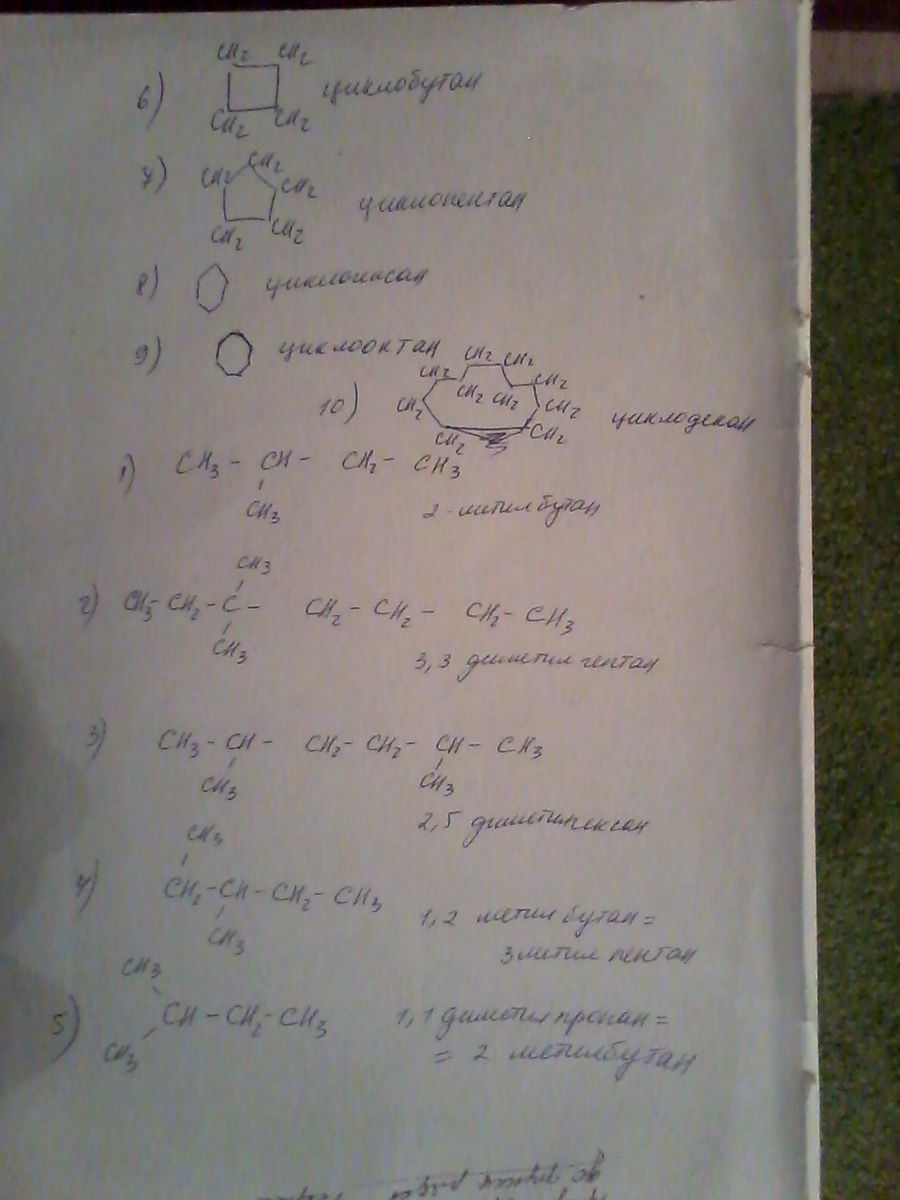 CH2 CH2
6) циклобутан
CH2 CH2
CH2
7) CH2 CH2
циклопентан
CH2 CH2
8) циклогексан
9) циклооктан
CH2 CH2
CH2 CH2
CH2 CH2
10) CH2 CH2
циклодекан
CH2 CH2
1) CH3 - CH - CH2 - CH3
CH3 2-метилбутан
CH3
2) CH3 - CH2 - C - CH2 - CH2 - CH2 - CH3
CH3
3,3 диметил гептан
3) CH3 - CH - CH2 - CH2 - CH - CH3
CH3 CH3
2,5 диметилгексан
CH3
4) CH2 - CH - CH2 - CH3
CH3
1,2 метил бутан =
3 метил пентан
CH3
5) CH - CH2 - CH3
CH3
1,1 диметил пропан =
= 2 метилбутан